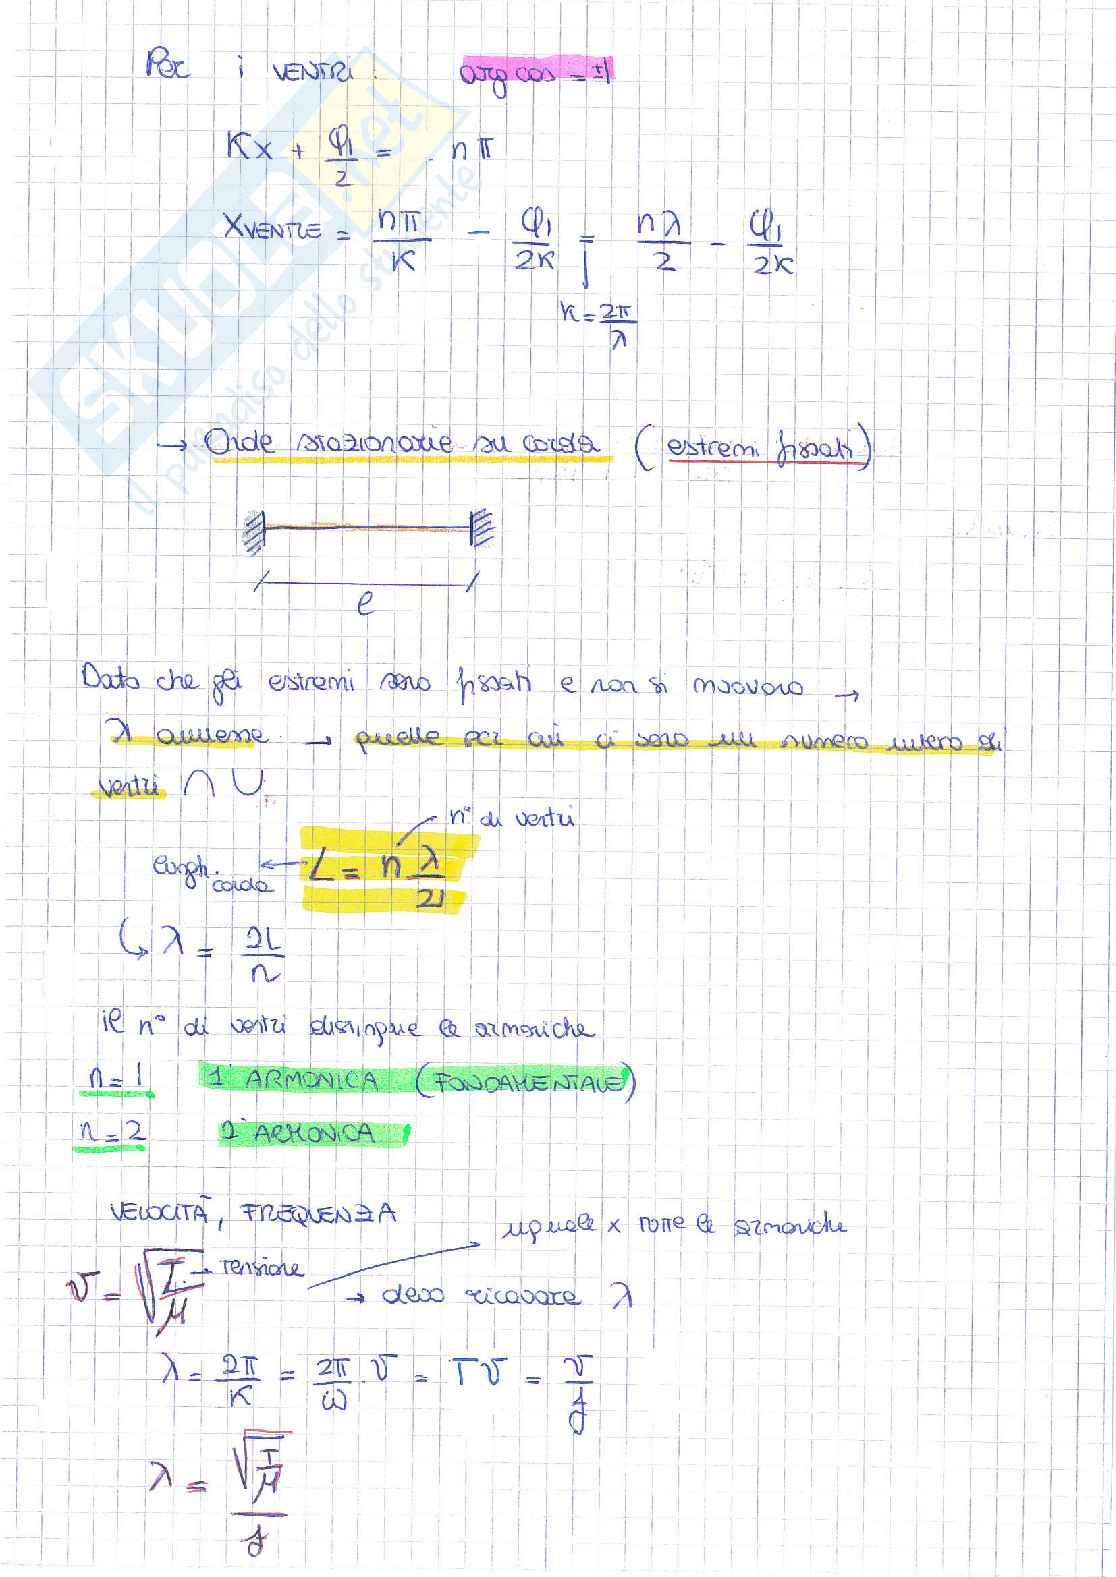 Per i VENTRI: arg cos = ±1
Kx + φ1/2 = nπ
XVENTRE = nπ/K - φ1/2K = nλ/2 - φ1/2K
K = 2π/λ
→ Onde stazionarie su corda (estremi fissati)
l
Dato che gli estremi sono fissati e non si muovono →
λ ammesse → quelle per cui ci sono un numero intero di
ventri ∩ ∪
n° di ventri
lungh. corda ← L = n λ/2
↳ λ = 2L/n
il n° di ventri distingue le armoniche
n = 1 1ª ARMONICA (FONDAMENTALE)
n = 2 2ª ARMONICA
VELOCITÀ, FREQUENZA
uguale x tutte le armoniche
v = √(T/μ) → tensione
→ devo ricavare λ
λ = 2π/K = 2π/ω · v = Tv = v/f
λ = √(T/μ)/f
SKUOLA.net
il paradiso dello studente